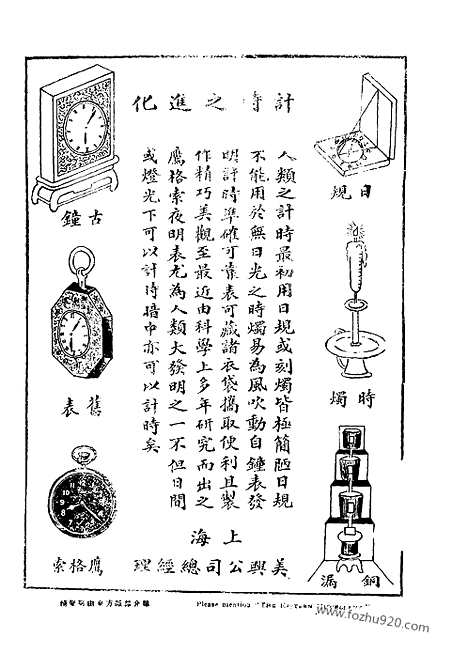 計時之進化
人類之計時最初用日規或刻燭皆極簡陋日規
不能用於無日光之時燭易為風吹動自鐘表發
明計時準確可靠表可藏諸衣袋攜取便利且製
作精巧美觀至最近由科學上多年研究而出之
鷹格索夜明表尤為人類大發明之一不但日間
或燈光下可以計時暗中亦可以計時矣
上海
美興公司總經理
日規
時燭
銅漏
古鐘
舊表
鷹格索
Please mention "THE EASTERN
www.fozhu920.com